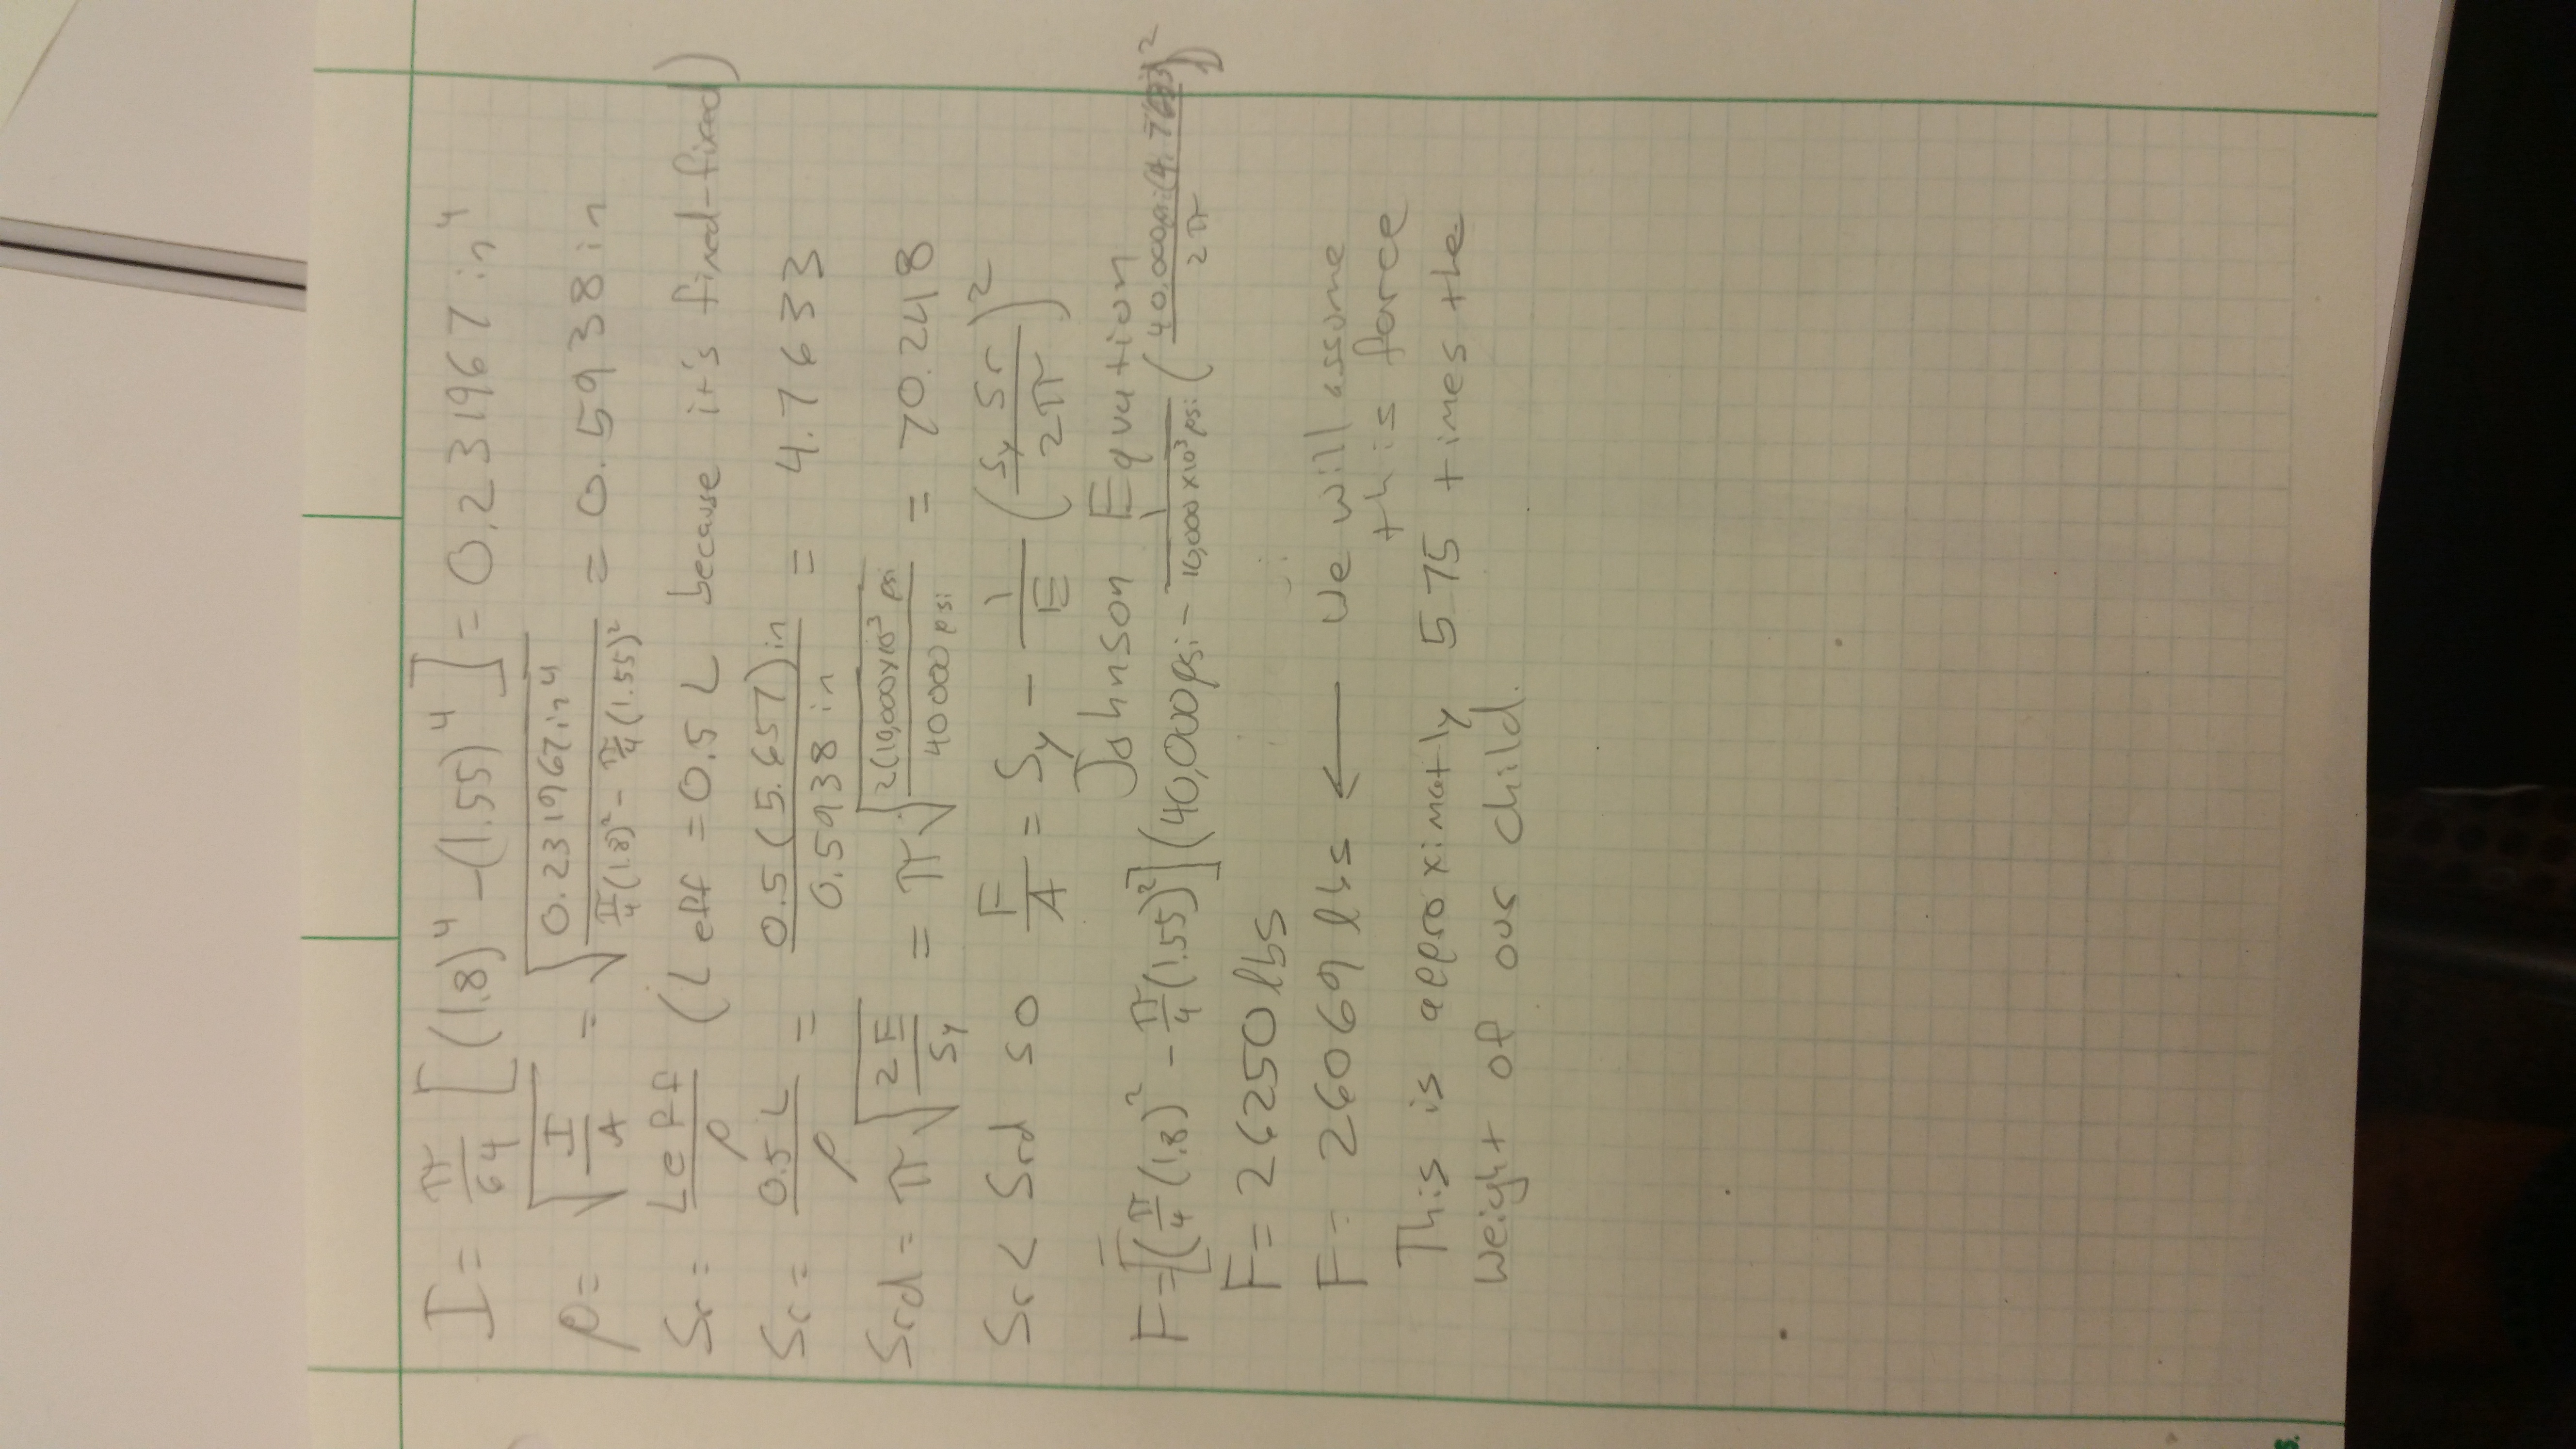 I = π/64 [(1.8)^4 - (1.55)^4] = 0.231967 in^4
ρ = √(I/A) = √(0.231967 in^4 / (π/4 (1.8)^2 - π/4 (1.55)^2)) = 0.5938 in
Sr = Leff/ρ (Leff = 0.5 L because it's fixed-fixed)
Sr = 0.5 L/ρ = 0.5(5.657) in / 0.5938 in = 4.7633
Srd = π √(2E/Sy) = π √(2(10,000x10^3 psi / 40000 psi) = 70.248
Sr < Srd so F/A = Sy - 1/E (Sy Sr / 2π)^2
Johnson Equation
F = [(π/4 (1.8)^2 - π/4 (1.55)^2] (40,000 psi - 1/(10,000 x10^3 psi) (40,000psi(4.7633) / 2π)^2
F = 26250 lbs
F = 26069 lbs ← We will assume
this force
This is approximately 575 times the
weight of our child.
s.